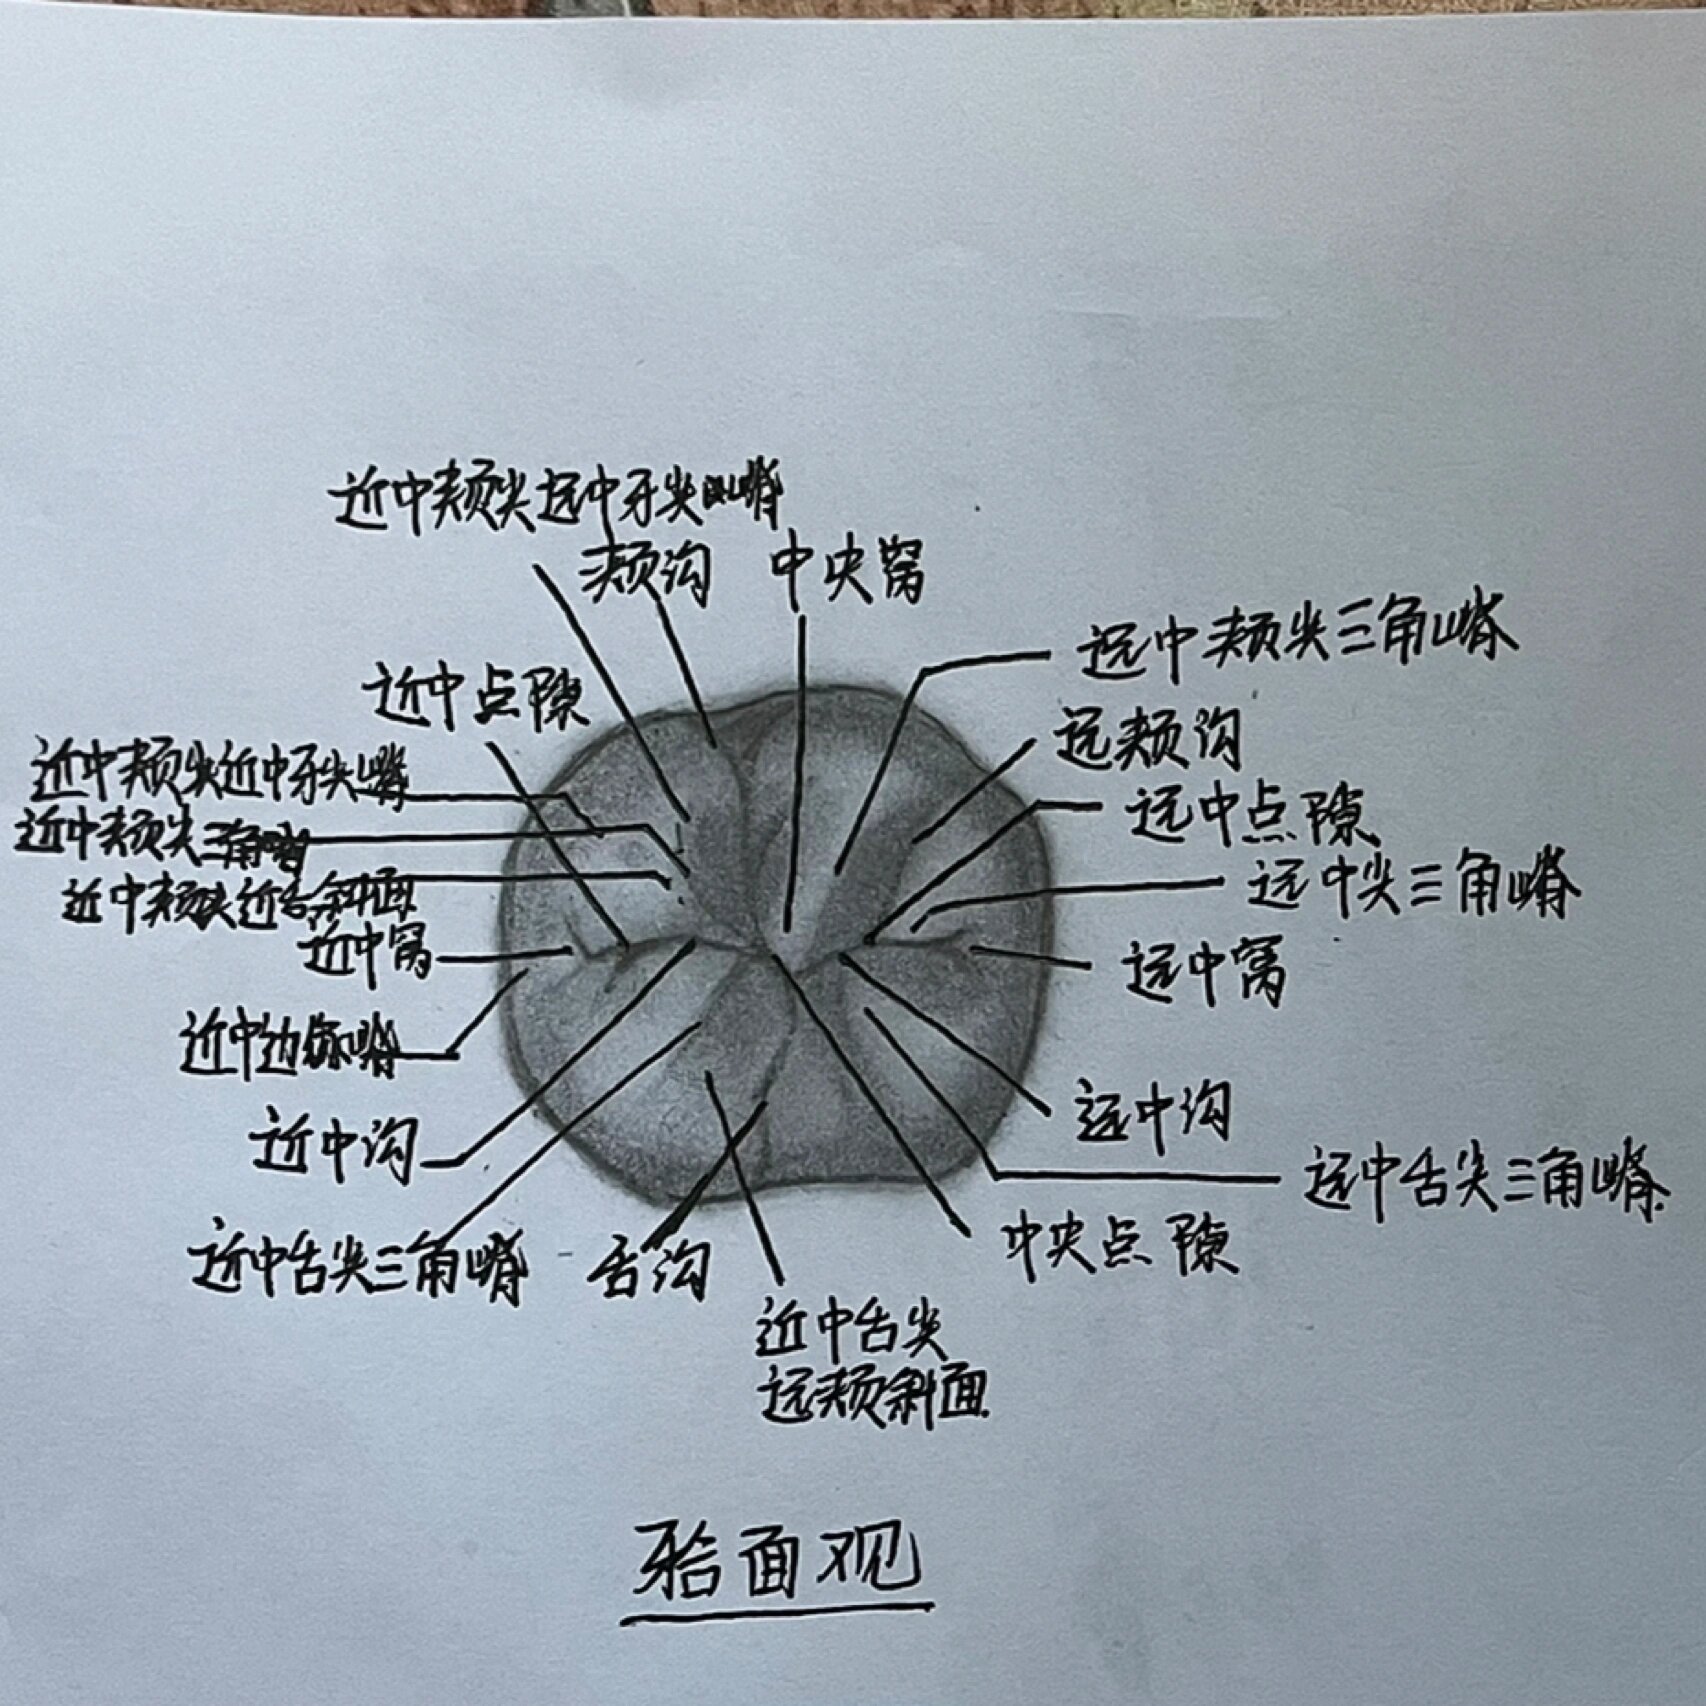 近中颊尖远中牙尖嵴
颊沟 中央窝
远中颊尖三角嵴
近中点隙
远颊沟
近中颊尖近中牙尖嵴
远中点隙
近中颊尖三角嵴
远中尖三角嵴
近中颊尖近舌斜面
近中窝
远中窝
近中边缘嵴
远中沟
近中沟
远中舌尖三角嵴
近中舌尖三角嵴
舌沟
中央点隙
近中舌尖
远颊斜面
𬌗面观